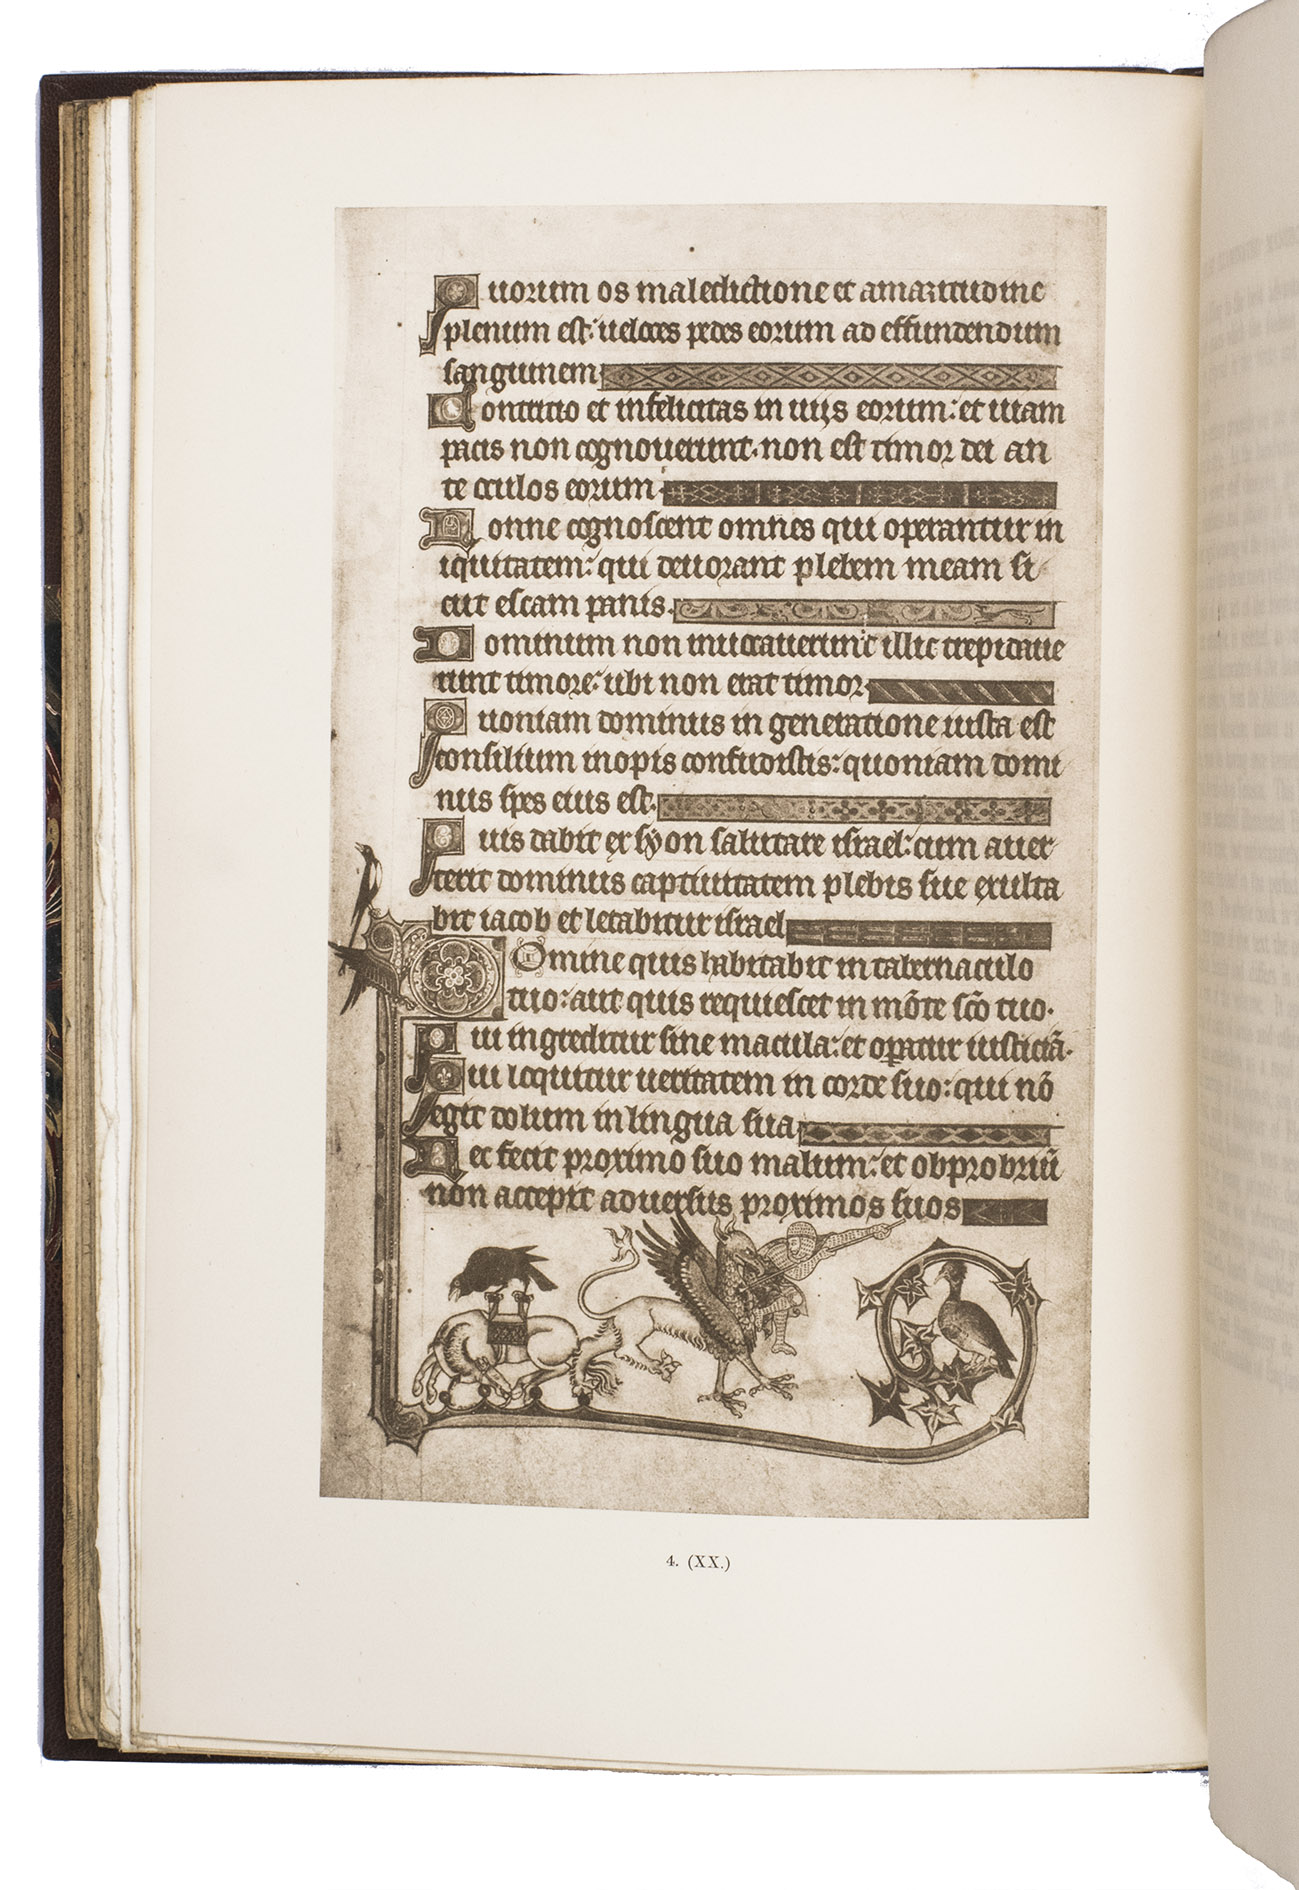 Quorum os maledictione et amaritudine
plenum est: ueloces pedes eorum ad effundendum
sanguinem
Contricio et infelicitas in uijs eorum: et uiam
pacis non cognouerunt. non est timor dei an
te oculos eorum.
Nonne cognoscent omnes qui operantur in
iquitatem: qui deuorant plebem meam si
cut escam panis.
Dominum non inuocauerunt illic trepidaue
runt timore: ubi non erat timor.
Quoniam dominus in generatione iusta est
consilium inopis confudistis: quoniam domi
nus spes eius est.
Quis dabit ex syon salutare israel: cum auer
terit dominus captiuitatem plebis sue exulta
bit iacob et letabitur israel
Domine quis habitabit in tabernaculo
tuo: aut quis requiescet in mõte sc̃o tuo.
Qui ingreditur sine macula: et opatur iusticiã.
Qui loquitur ueritatem in corde suo: qui nõ
egit dolum in lingua sua
Nec fecit proximo suo malum: et obprobriũ
non accepit aduersus proximos suos
4. (XX.)